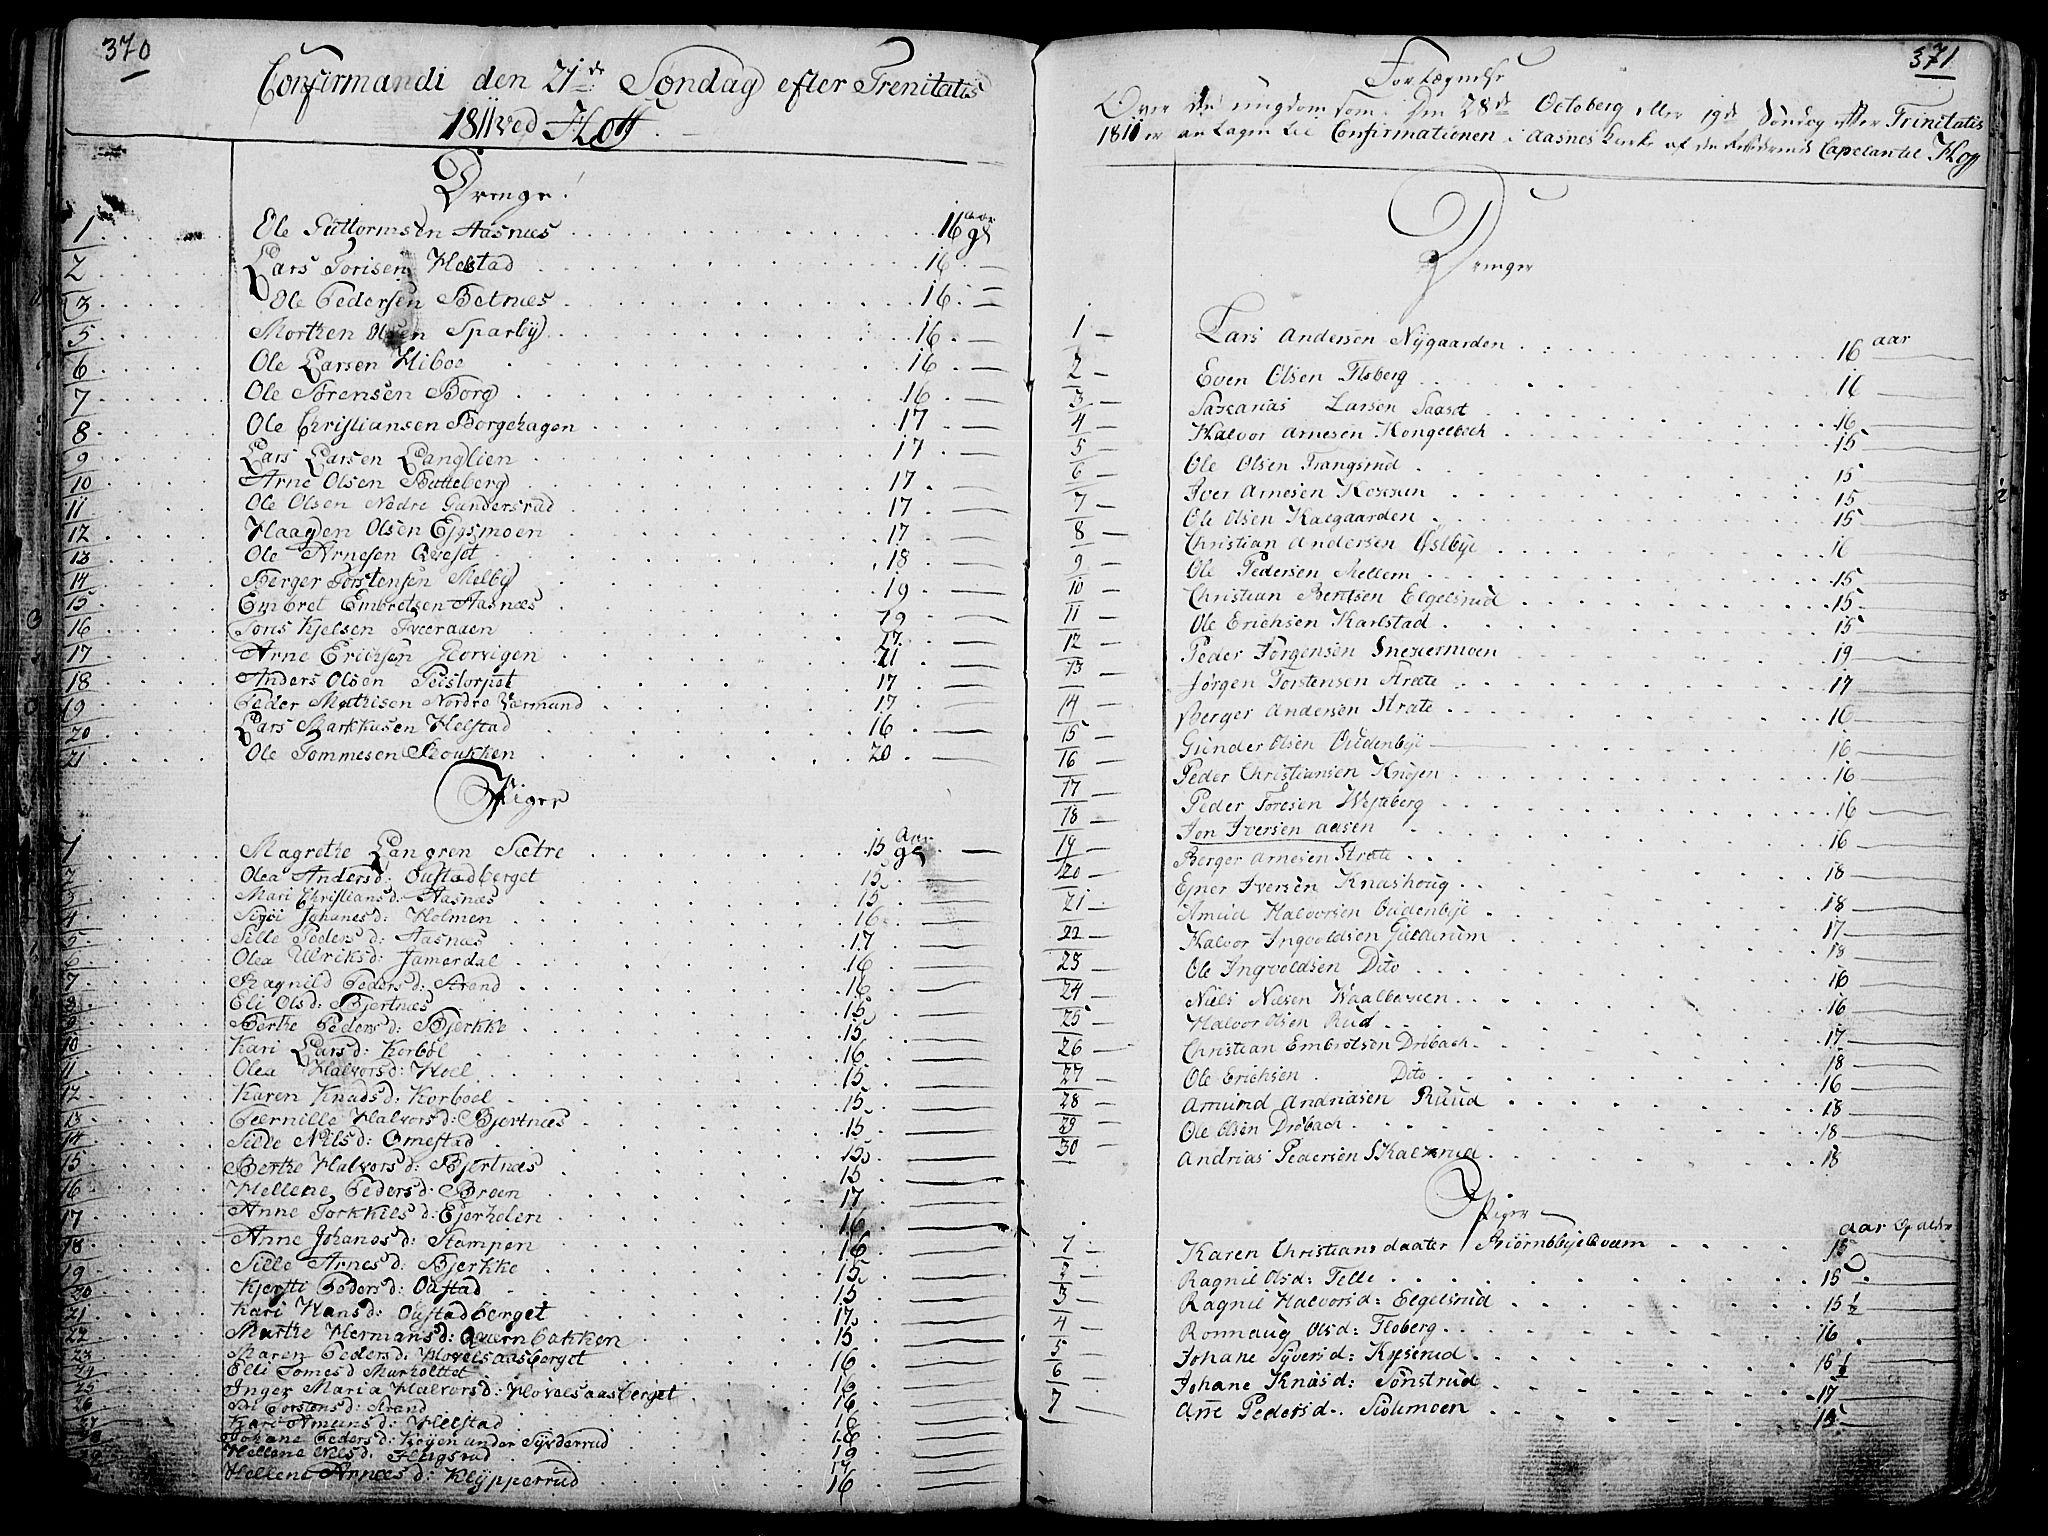 370
Confirmandi den 21de Søndag efter Trenitatis
1811 ved Hoff.
Drenge!
1 Ole Guttormsen Aasnæs 16 aar gl
2 Lars Torisen Helstad 16
3 Ole Pedersen Betnæs 16
5 Morthen Olsen Sparby 16
6 Ole Larsen Hiboe 16
7 Ole Sørensen Borg 16
8 Ole Christiansen Borgehagen 17
9 Lars Larsen Langlien 17
10 Arne Olsen Butteberg 17
11 Ole Olsen Nødre Gundersrud 17
12 Haagen Olsen Ejgsmoen 17
13 Ole Arnesen Qveset 18
14 Berger Torstensen Melby 19
15 Embret Embretsen Aasnæs 19
16 Jons Kjelsen Tveraaen 17
17 Arne Erichsen Giorvigen 21
18 Anders Olsen Peistorpet 17
19 Peder Mathisen Nordre Værmund 17
20 Lars Markkusen Helstad 16
21 Ole Tommesen Roukken 20
Piger
1 Magrethe Langren Sætre 15 Aar gl
2 Olea Andersd: Oustadberget 15
3 Mari Christiansd: Aasnæs 15
4 Sigri Johanesd: Holmen 16
5 Sille Pedersd: Aasnæs 17
6 Olea Ulriksd: Jamerdal 16
7 Ragnild Pedersd: Strand 16
8 Eli Olsd: Bjertnæs 15
9 Berthe Pedersd: Bjerkke 15
10 Kari Larsd: Korbøl 16
11 Olea Halvorsd: Hoel 15
12 Karen Knudsd: Korboel 15
13 Pernille Halvorsd: Bjertnæs 15
14 Sille Nilsd: Omestad 15
15 Berthe Halvorsd: Bjertnæs 15
16 Hellene Pedersd: Broen 17
17 Anne Torkkilsd: Ejerhelen 16
18 Anne Johanesd: Stampen 16
19 Sille Arnesd: Bjerkke 15
20 Kjersti Pedersd: Oustad 15
21 Kari Hansd: Oustadberget 17
22 Marthe Hermansd: Quernbakken 15
23 Maren Pedersd: Hovelsaasberget 16
24 Elli Tomesd Murholttet 16
25 Inger Maria Halvorsd: Hovelsaasberget 16
26 Torstensd: Strand 18
27 Kari Amunsd: Helstad 18
Johane Pedersd: Køyen under Syvderrud 19
Hellene Nilsd: Haugsrud 17
Hellene Arnesd: Klypperrud 16
371
Fortegnelse
Over de ungdom som den 28de Octoberg eller 19de Søndag efter Trinitatis
1811 er antagen til Confirmationen i Aasnes Kirke af den Capelan til Hoff
Drenger
1 Lars Andersen Nygaarden 16 aar
2 Even Olsen Flsberg 16
3 Larsen 16
4 Halvor Arnesen Kongelbech 15
5 Ole Olsen Trangsrud 15
6 Iver Arnesen 15
7 Ole Olsen Kalgaarden 15
8 Christian Andersen Østbye 16
9 Ole Pedersen Mellem 15
10 Christian Berntsen Elgelsrud 15
11 Ole Erichsen Karlstad 15
12 Peder Jørgensen Snekermoen 19
13 Jørgen Torstensen Stræte 17
14 Berger Andersen Stræte 16
15 Gunder Olsen Oudenbye 16
16 Peder Christiansen Knøjen 16
17 Peder Toresen Westberg 16
18 Jon Iversen Aasen 16
19 Berger Arnesen Stræte 18
20 Ejner Iversen Knashoug 18
21 Amud Halvorsen Oudenbye 17
22 Halvor Ingvoldsen Guldrum 18
23 Ole Ingvoldsen Dito 16
24 Niels Nilsen Haalbaken 16
25 Halvor Olsen Rud 17
26 Christian Embretsen Drøbach 18
27 Ole Erichsen Dito 16
28 Amund Andriasen Ruud 18
29 Ole Olsen Drøbach 18
30 Andrias Pedersen Skalkrud 18
Piger
aar Gamle
1 Karen Christians daater Biørnebyekvern 15
2 Ragnil Olsd: Telle 15
3 Ragnil Halvorsd: Elgelsrud 15 1/2
4 Ronnaug Olsd: Floberg 16
5 Johane Syversd: Kjeserud 16 1/2
6 Johane Knudsd: Tønsrud 17
7 Ane Pedersd: Stolmoen 15